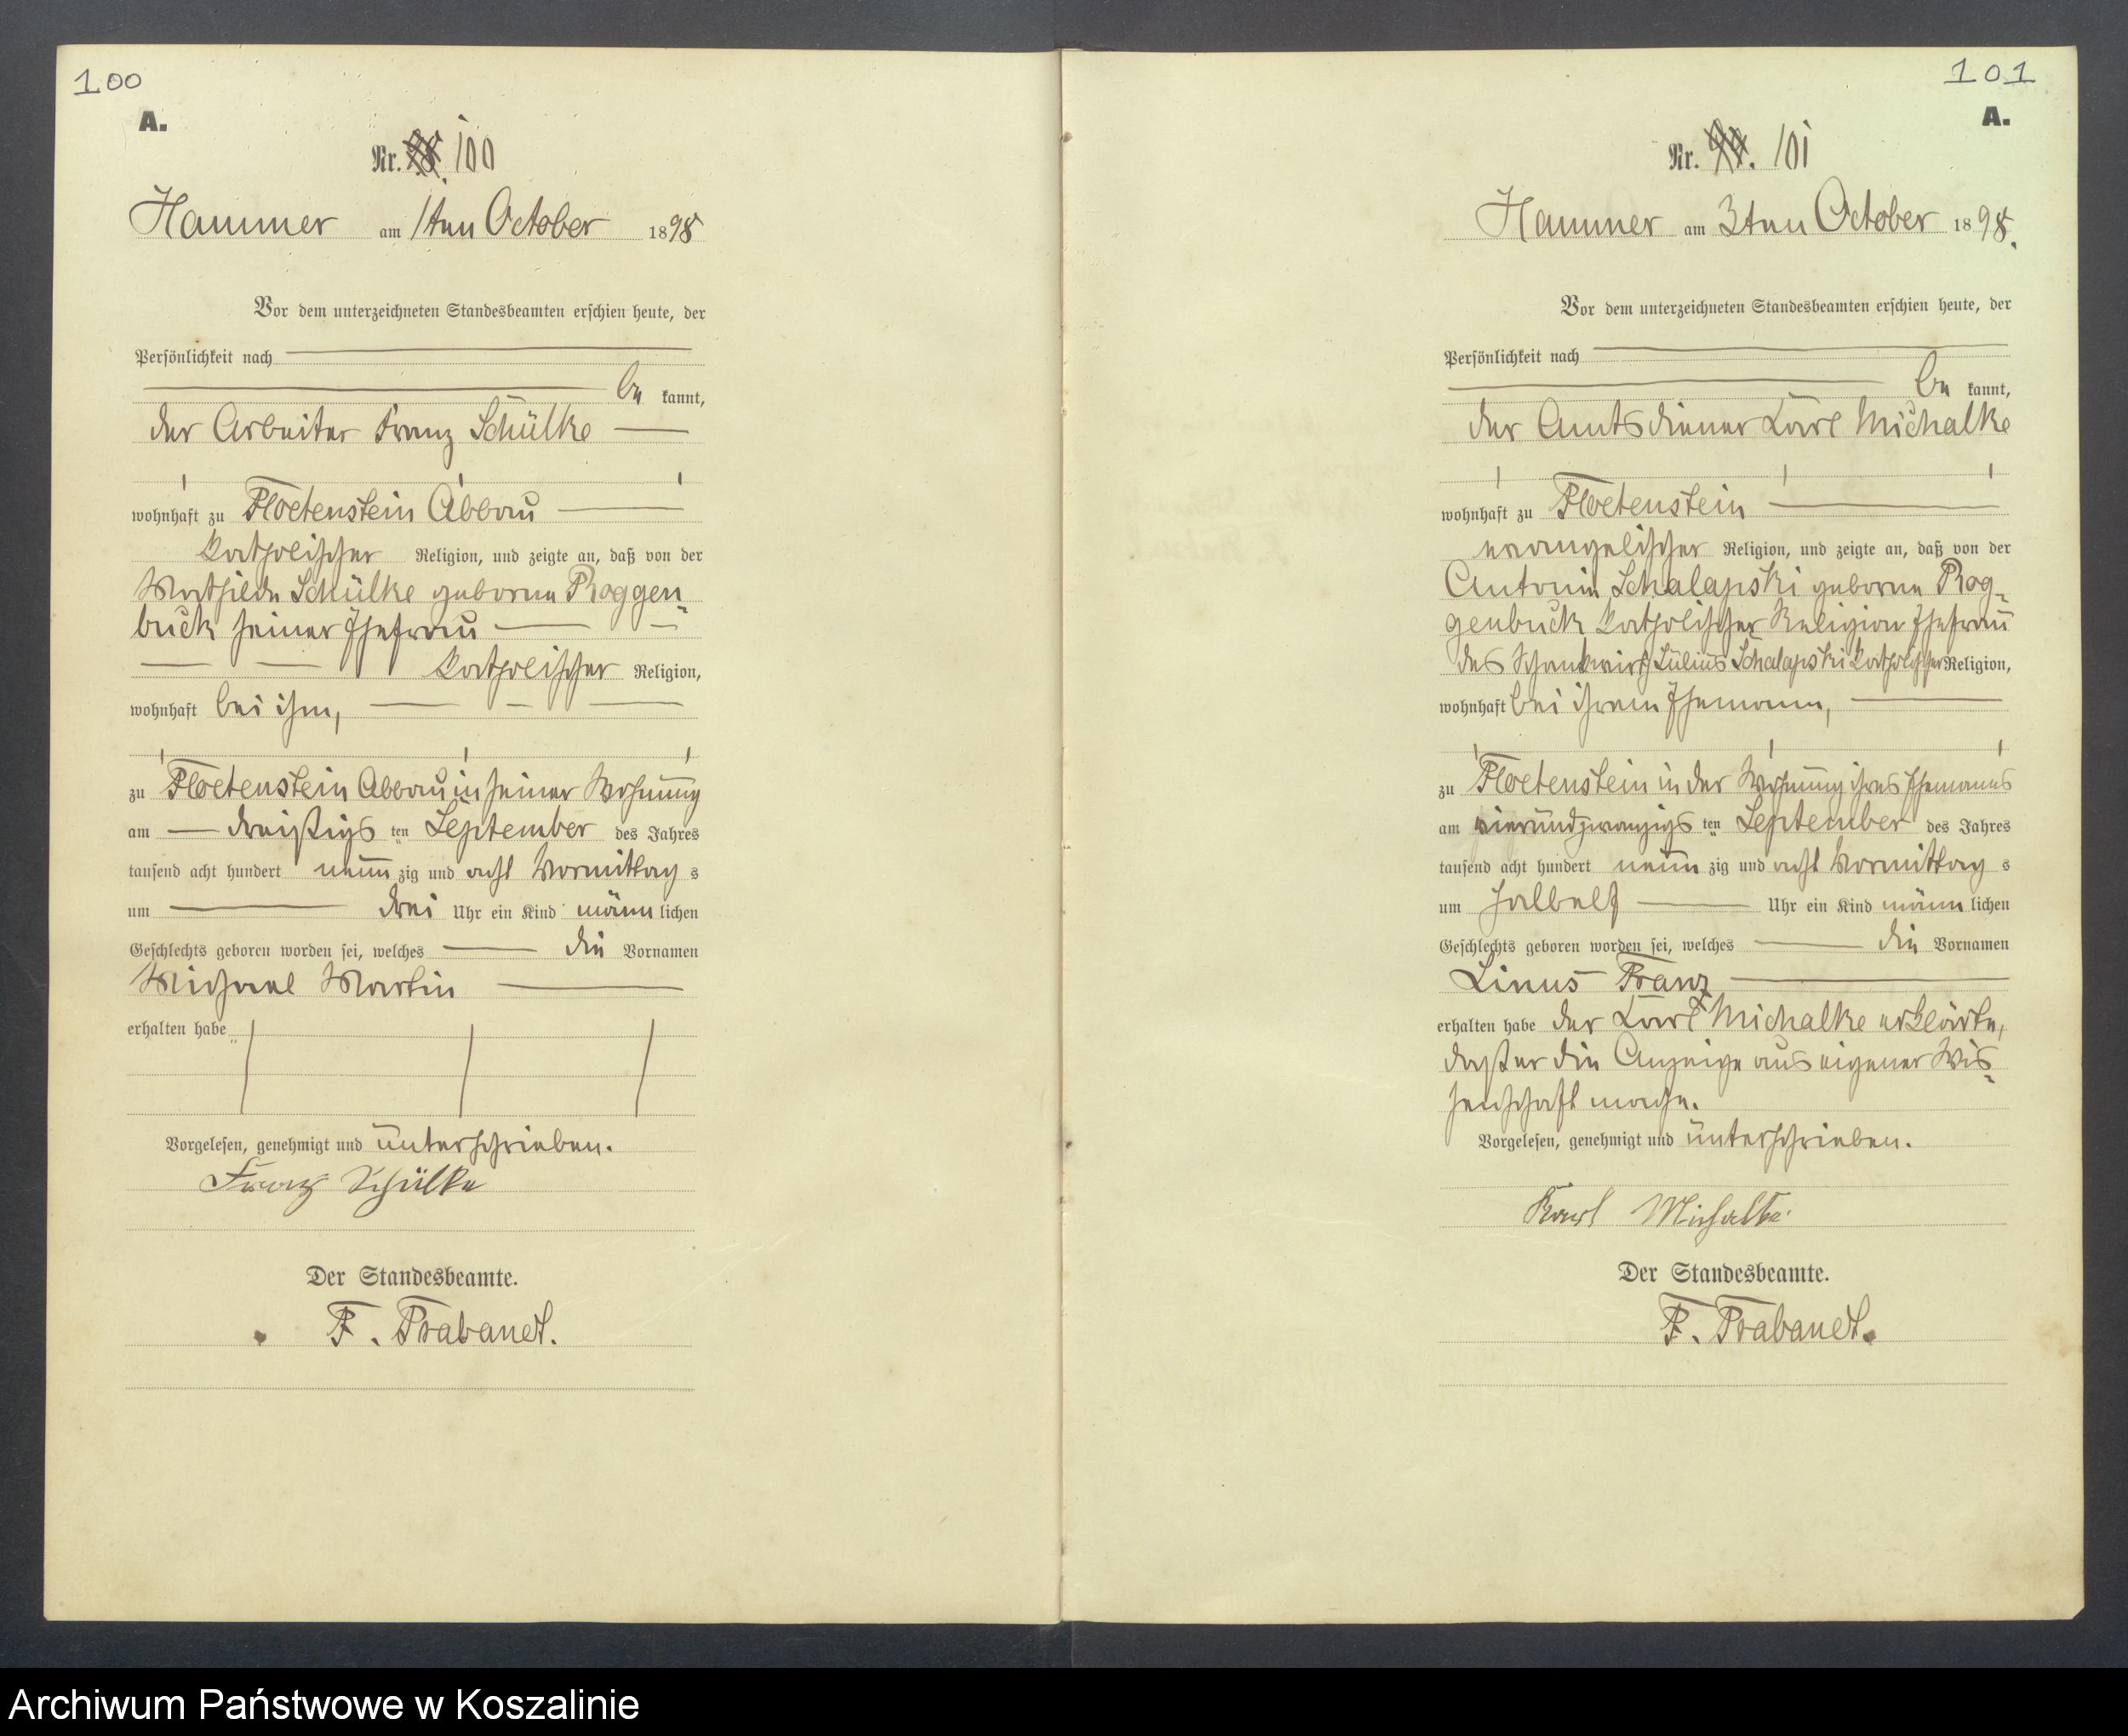 100
A.
Nr. 100
Hammer am 1ten October 1898
Vor dem unterzeichneten Standesbeamten erschien heute, der
Persönlichkeit nach
be kannt,
der Arbeiter Franz Schülke
wohnhaft zu Floetenstein Abbau
katholischer Religion, und zeigte an, daß von der
Mathilde Schülke geborne Roggen
buck seiner Ehefrau
katholischer Religion,
wohnhaft bei ihm,
zu Floetenstein Abbau in seiner Wohnung
am dreißigs ten September des Jahres
tausend acht hundert neun zig und acht Vormittag s
um drei Uhr ein Kind männ lichen
Geschlechts geboren worden sei, welches die Vornamen
Michael Martin
erhalten habe
Vorgelesen, genehmigt und unterschrieben.
Franz Schülke
Der Standesbeamte.
F. Prabandt.
101
A.
Nr. 101
Hammer am 3ten October 1898.
Vor dem unterzeichneten Standesbeamten erschien heute, der
Persönlichkeit nach
be kannt,
der Amtsdiener Karl Michalke
wohnhaft zu Floetenstein
evangelischer Religion, und zeigte an, daß von der
Antonie Schalapski geborne Rog-
genbuck katholischer Religion Ehefrau
des Schankwirth Julius Schalapski katholischer Religion,
wohnhaft bei ihrem Ehemann,
zu Floetenstein in der Wohnung ihres Ehemanns
am vierundzwanzigs ten September des Jahres
tausend acht hundert neun zig und acht Vormittag s
um halbelf Uhr ein Kind männ lichen
Geschlechts geboren worden sei, welches die Vornamen
Linus Franz
erhalten habe der Karl Michalke erklärte,
daß er die Anzeige aus eigener Wis-
senschaft mache.
Vorgelesen, genehmigt und unterschrieben.
Karl Michalke
Der Standesbeamte.
F. Prabandt.
Archiwum Państwowe w Koszalinie